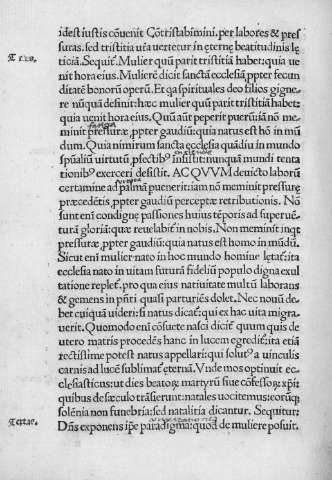 id est iustis cõuenit Cõtristabimini, per labores & pres
suras, sed tristitia uřa uertetur in ęternę beatitudinis lę
ticiã. Sequit᷒. Mulier quũ parit tristitiã habet: quia ue
nit hora eius. Mulierẽ dicit sanctã ecclesiã ꝓpter fecun
ditatẽ bonorũ operũ. Et qa spirituales deo filios gigne
re nũquã definit: hæc mulier quũ parit tristitiã habet:
quia uenit hora eius. Quũ aũt peperit puerũ: iã nõ me
minit pressuræ, ꝓpter gaudiũ: quia natus est hõ in mũ
dum. Quia nimirum sancta ecclesia quãdiu in mundo
spũaliũ uirtutũ ꝓfectib᷒ insistit: nunquã mundi tenta
tionib᷒ exerceri desistit. AC QVVM deuicto laborũ
certamine ad palmã puenerit: iam nõ meminit pressurę
præcedẽtis, ꝓpter gaudiũ perceptæ retributionis. Nõ
sunt enĩ condignę passiones huius tẽporis ad superuẽ
turã gloriã: quæ reuelabit᷒ in nobis. Non meminit inqt
pressuræ, ꝓpter gaudiũ: quia natus est homo in mũdũ.
Sicut enĩ mulier nato in hoc mundo homine lętat᷒: ita
ecclesia nato in uitam futurã fideliũ populo digna exul
tatione replet᷒. pro qua eius natiuitate multũ laborans
& gemens in pñti quasi parturiẽs dolet. Nec nouũ de-
bet cuiquã uideri: si natus dicat᷒: qui ex hac uita migra
uerit. Quomodo enĩ cõsuete nasci dicit᷒ quum quis de
utero matris procedẽs hanc in lucem egredit᷒: ita etiã
rectissime potest natus appellari: qui solut᷒ a uinculis
carnis ad lucẽ sublimat᷒ ęternã. Vnde mos optinuit ec
clesiasticus: ut dies beatoꝝ martyrũ siue cõfessoꝝ xp̃i:
quibus de sæculo trãsierunt: natales uocitemus: eorũꝙ
solẽnia non funebria: sed natalitia dicantur. Sequitur:
Dñs exponens ip̃e paradigma: quod de muliere posuit.